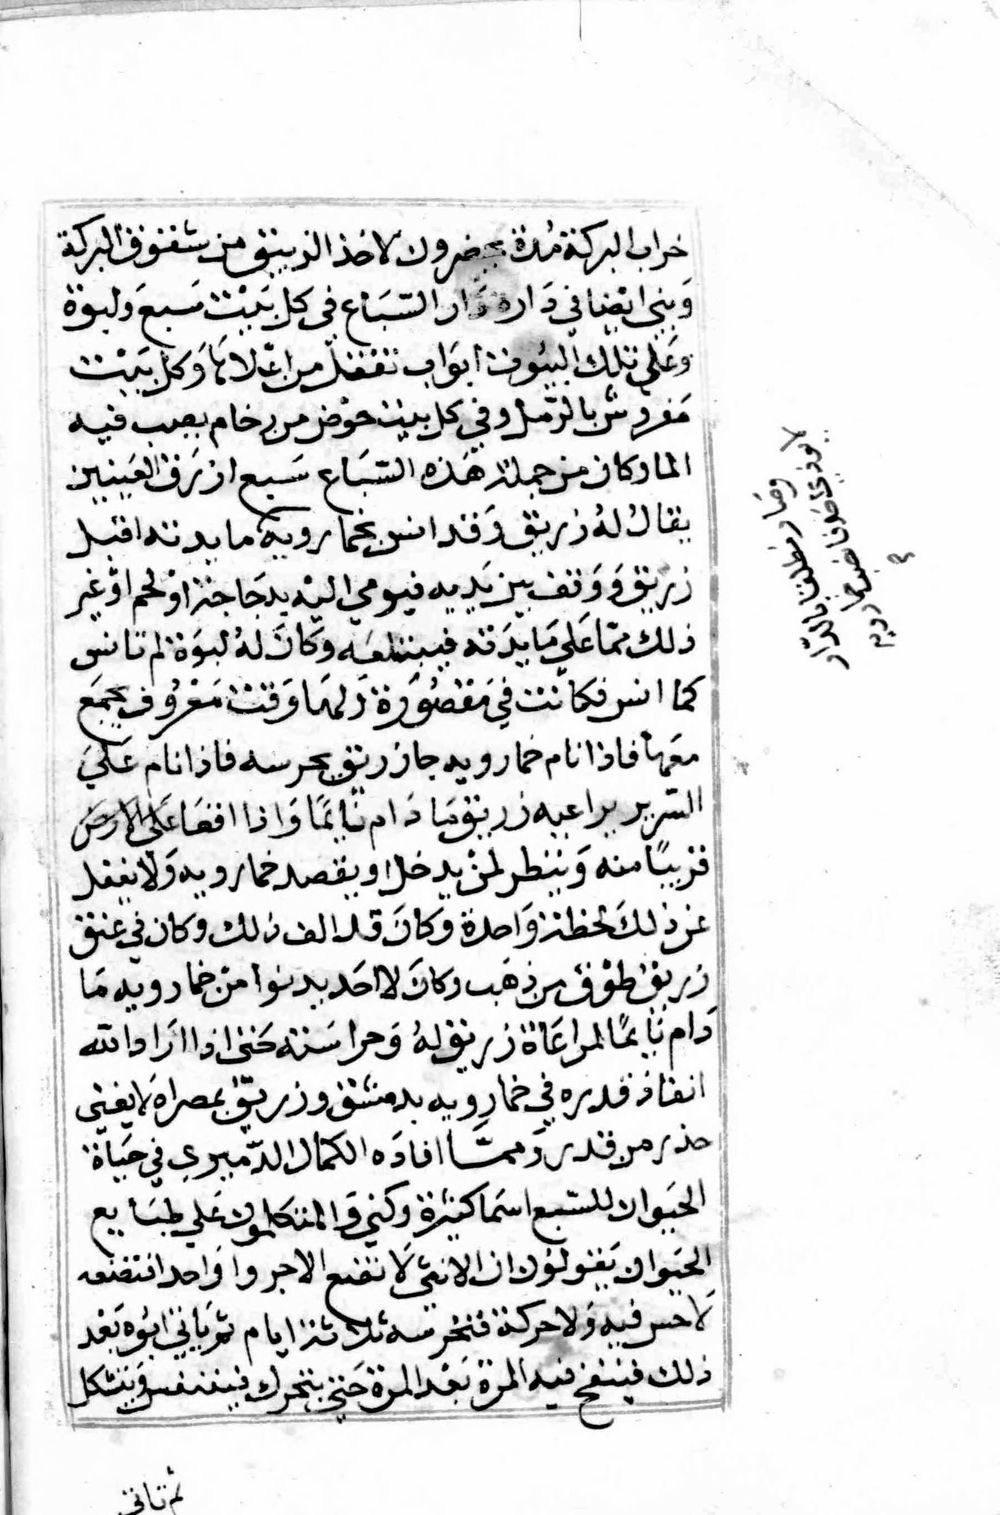 خراب البركة مدة يحضرون لاخذ الزيبق من شقوق البركة
وبني ايضا في داره دار السباع في كل بيت سبع ولبوة
وعلي تلك البيوت ابواب تقفل من اعلاها وكل بيت
مفروش بالرمل وفي كل بيت حوض من رخام يصب فيه
الما وكان من جملة هذه السباع سبع ازرق العينين
يقال له زريق وقد انس بخمارويه مايدته اقبل
زريق ووقف بين يديه فيومي اليه بدجاجة او لحم او غير
ذلك مما علي مايدته فيبتلعه وكان له لبوة لم تانس
كما انس فكانت في مقصورة ولها وقت معروف يجمع
معها فاذا نام خمارويه جا زريق يحرسه فاذا نام علي
السرير يراعيه زريق ما دام نايما واذا اقعا علي الارض
قريبا منه وينظر لمن يدخل او يقصد خمارويه ولا يغفل
عن ذلك لحظة واحدة وكان قد الف ذلك وكان في عنق
زريق طوق من ذهب وكان لا احد يدنوا من خمارويه ما
دام نايما لمراعاة زريق له وحراسته حتى اذا اراد الله
انفاذ قدره في خمارويه بدمشق وزريق بمصر اه لا يغني
حذر من قدر ومما افاده الكمال الدميري في حياة
الحيوان للسبع اسما كثيرة وكني والمتكلمون علي طبايع
الحيوان يقولون ان الانثي لا تضع الا جروا واحدا تضعه
لا حس فيه ولا حركة فتحرسه ثلاثة ايام ثم ياتي ابوه بعد
ذلك فينفخ فيه المرة بعد المرة حتي يتحرك فيتنفس ويتشكل
ثم تاتي
وصار مطلقا بالدار
لا يوذي احدا